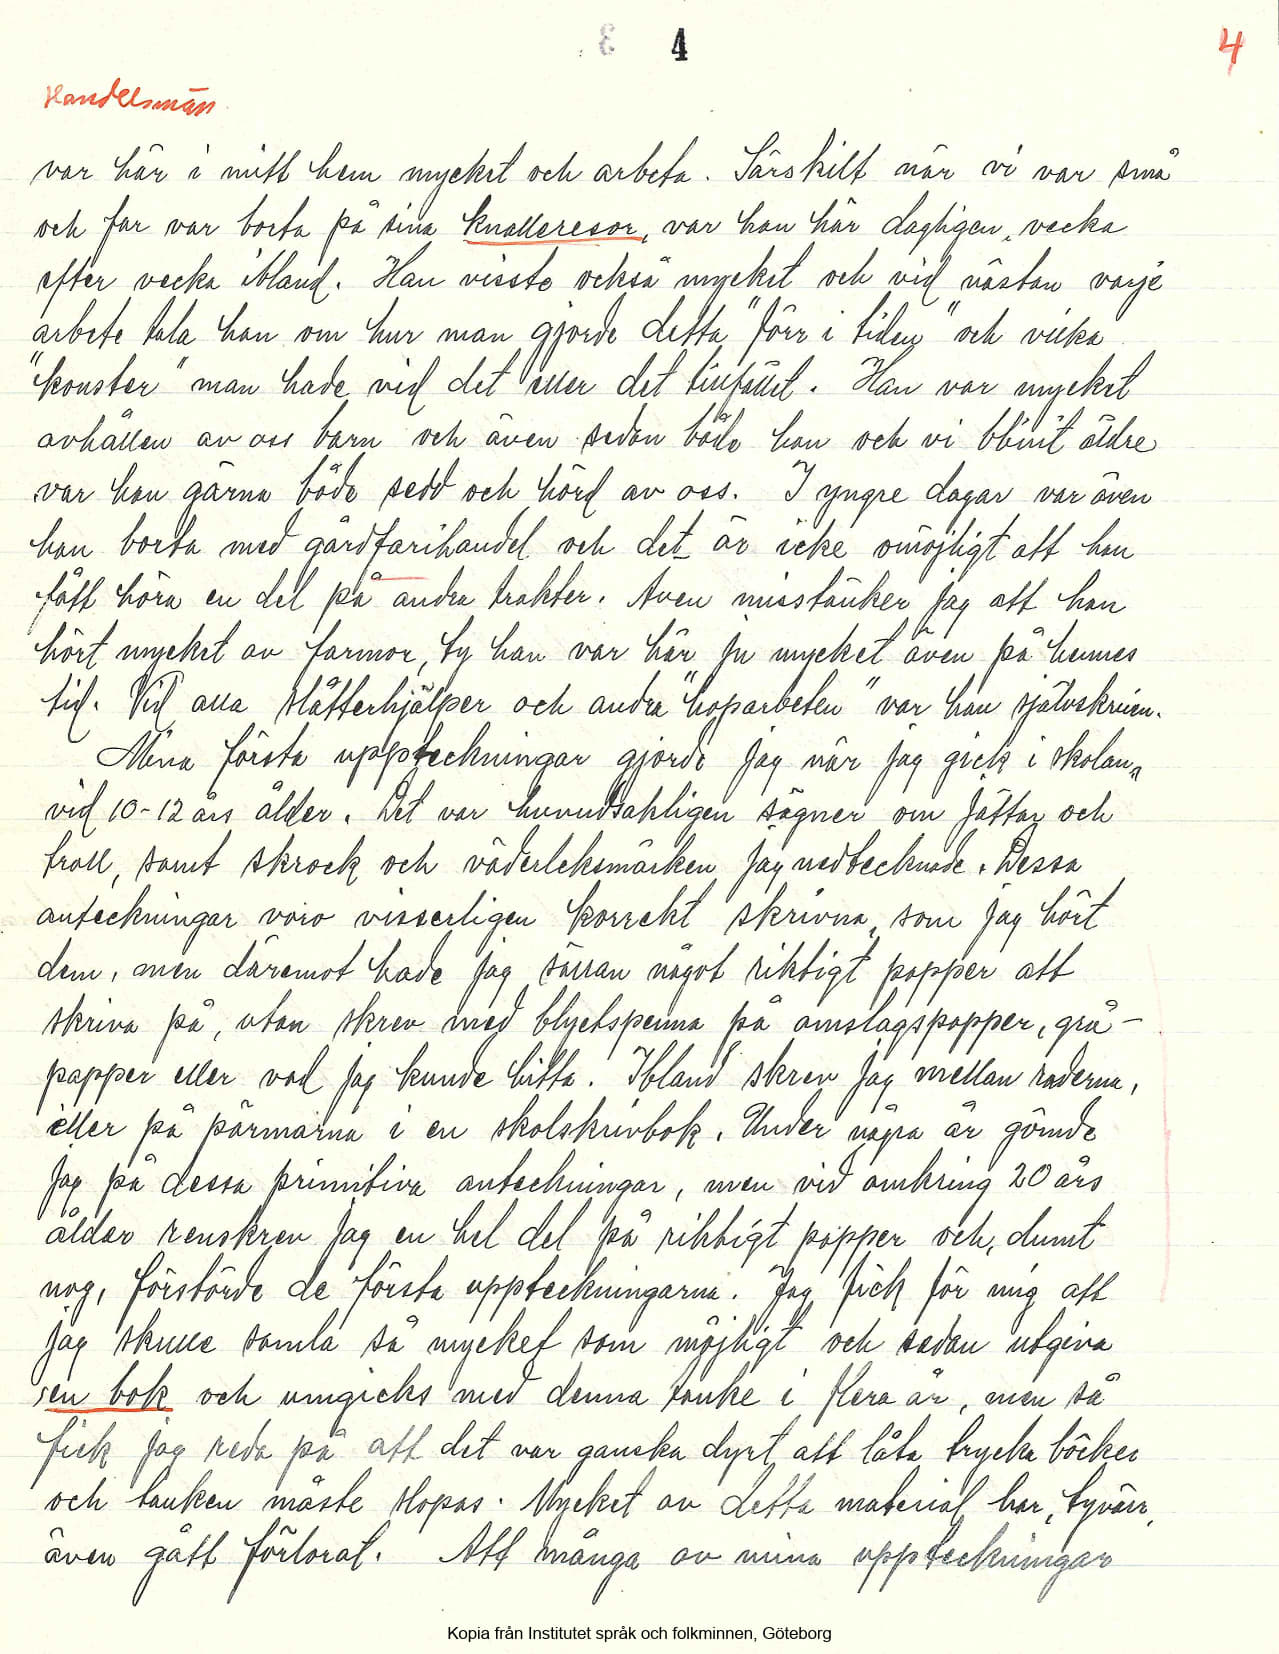 3 4 4
Handelsmän
var här i mitt hem mycket och arbeta. Särskilt när vi var små
och far var borta på sina knalleresor, var han här dagligen, vecka
efter vecka ibland. Han visste också mycket och vid nästan varje
arbete tala han om hur man gjorde detta "förr i tiden" och vilka
"konster" man hade vid det eller det tillfället. Han var mycket
avhållen av oss barn och även sedan både han och vi blivit äldre
var han gärna både sedd och hörd av oss. I yngre dagar var även
han borta med gårdfarihandel och det är icke omöjligt att han
fått höra en del på andra trakter. Även misstänker jag att han
hört mycket av farmor, ty han var här ju mycket även på hennes
tid. Vid alla slåtterhjälper och andra "hoparbeten" var han självskriven.
Mina första uppteckningar gjorde jag när jag gick i skolan,
vid 10-12 års ålder. Det var huvudsakligen sägner om jättar och
troll, samt skrock och väderleksmärken jag nedtecknade. Dessa
anteckningar voro visserligen korrekt skrivna, som jag hört
dem, men däremot hade jag sällan något riktigt papper att
skriva på, utan skrev med blyetspenna på omslagspapper, grå-
papper eller vad jag kunde hitta. Ibland skrev jag mellan raderna,
eller på pärmarna i en skolskrivbok. Under några år gömde
jag på dessa primitiva anteckningar, men vid omkring 20 års
ålder renskrev jag en hel del på riktigt papper och, dumt
nog, förstörde de första uppteckningarna. Jag fick för mig att
jag skulle samla så mycket som möjligt och sedan utgiva
en bok och umgicks med denna tanke i flera år, men så
fick jag reda på att det var ganska dyrt att låta trycka böcker
och tanken måste slopas. Mycket av detta material har, tyvärr,
även gått förlorat. Att många av mina uppteckningar
Kopia från Institutet språk och folkminnen, Göteborg